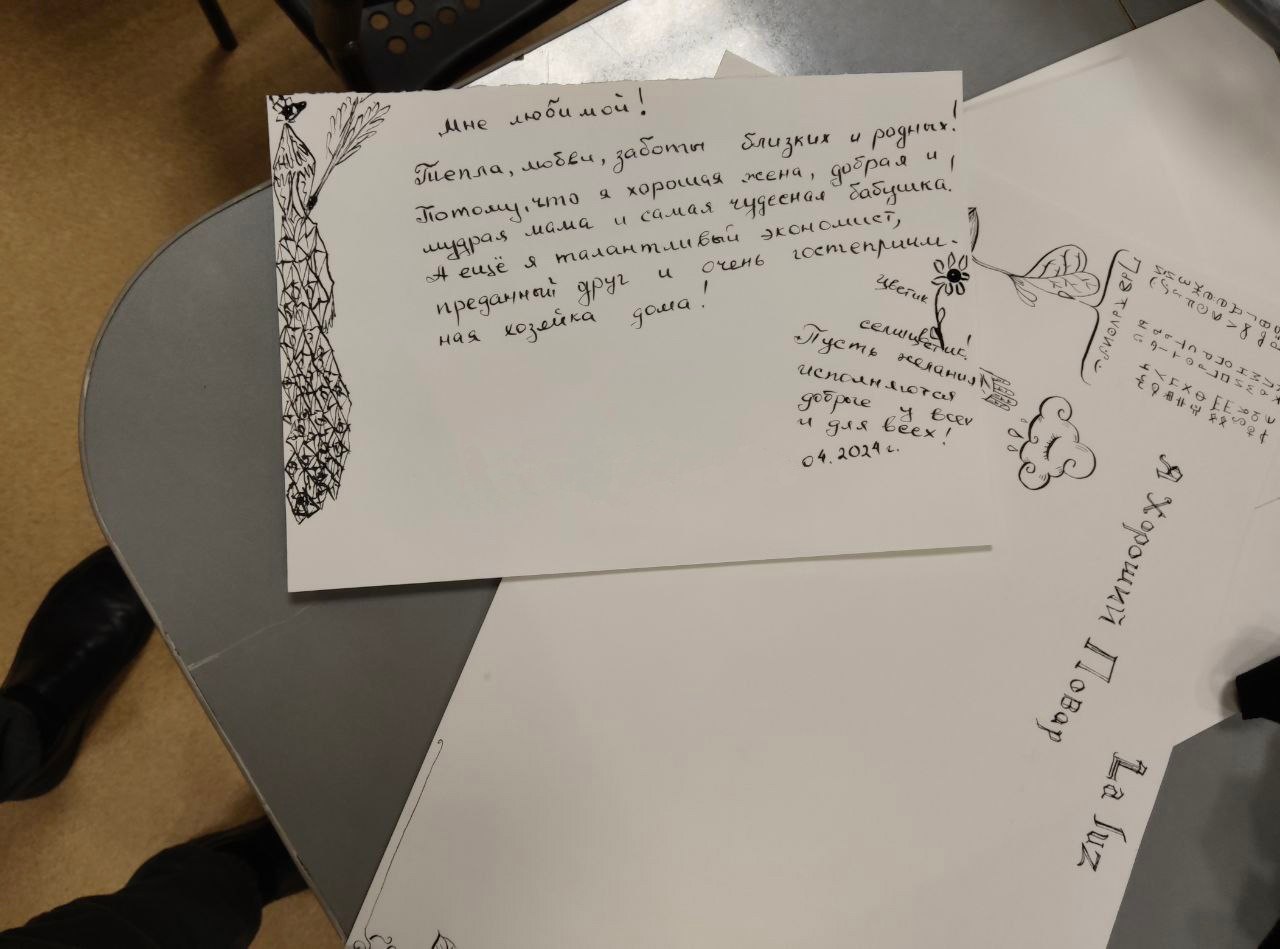 Мне любимой!
Тепла, любви, заботы близких и родных!
Потому, что я хорошая жена, добрая и
мудрая мама и самая чудесная бабушка!
А ещё я талантливый экономист,
преданный друг и очень гостеприим-
ная хозяйка дома!
Цветик
семицветик!
Пусть желания
исполняются
добрые у всех
и для всех!
04.2024г.
Я Хороший Повар
La luz